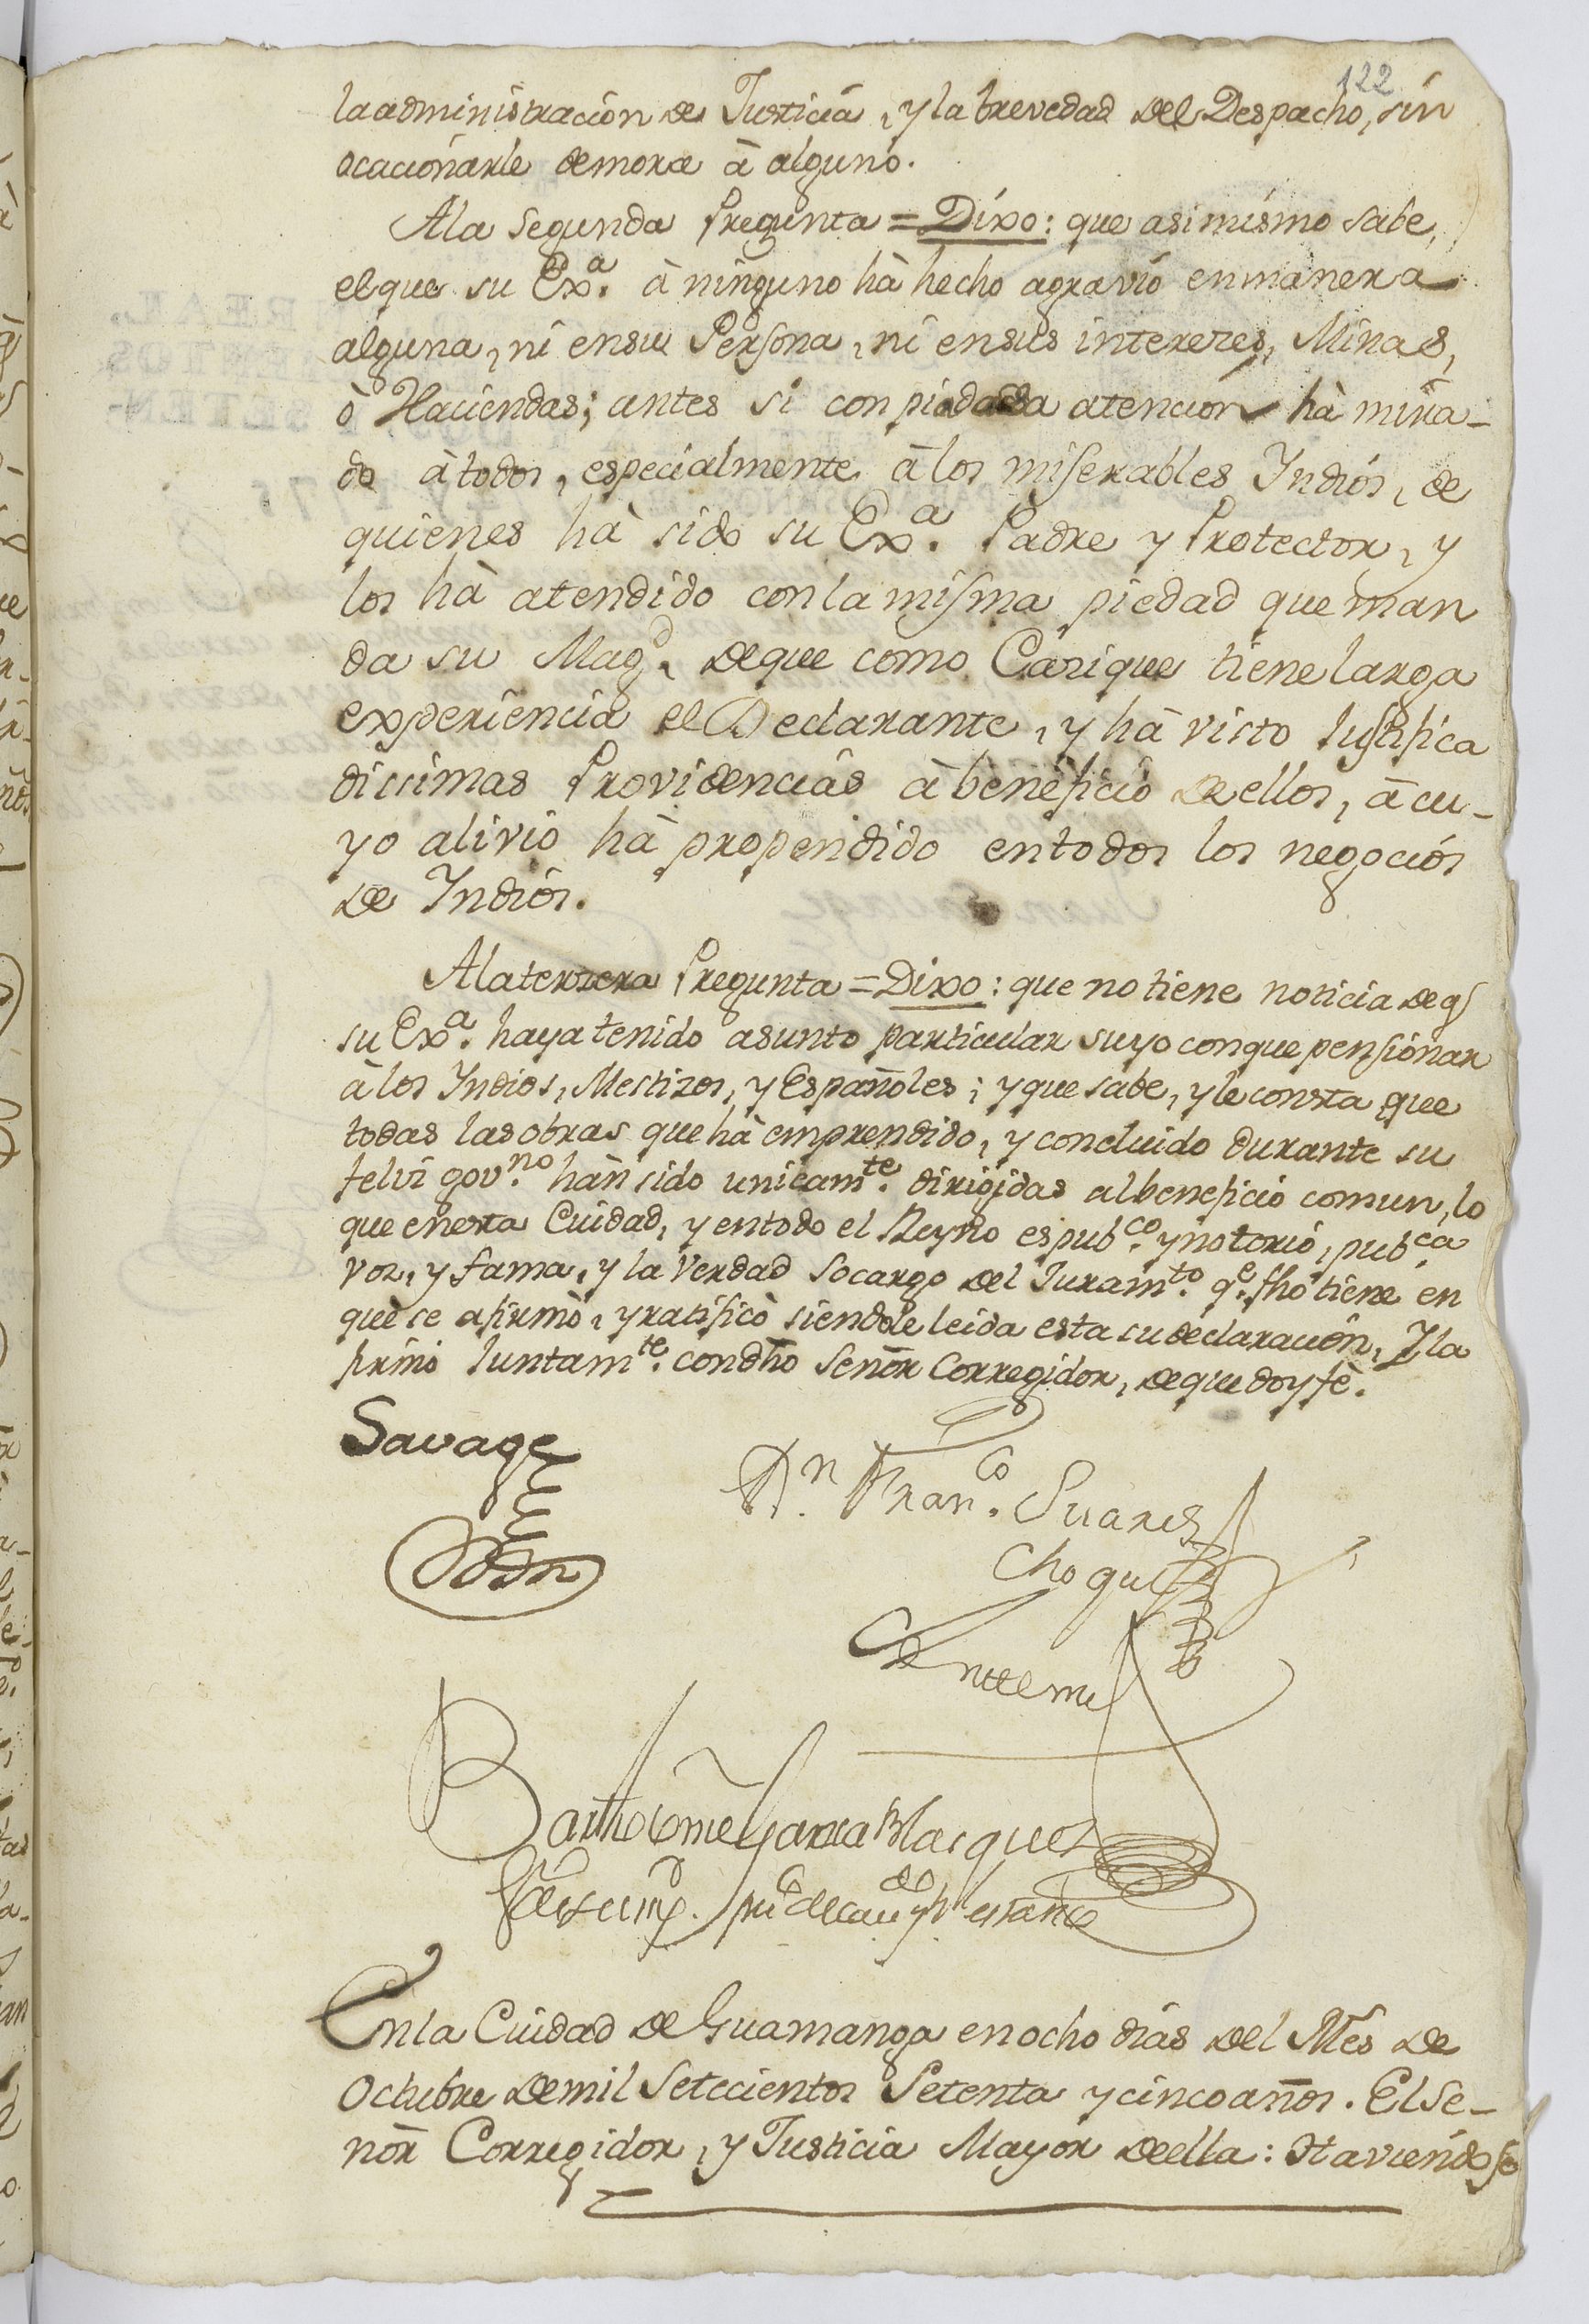 122
la administracion de Justicia, y la brevedad del Despacho, sin
ocacionarle demora à alguno.
A la Segunda Pregunta = Dixo: que asi mismo sabe,
el que su Exa. à ninguno hà hecho agravio en manera
alguna, ni en su Persona, ni en sus intereses, Minas,
ò Haciendas; antes si con piadosa atencion hà mira-
do à todos, especialmente à los miserables Indios, de
quienes hà sido su Exa. Padre y Protector, y
los hà atendido con la misma piedad que man
da su Magd. de que como Cazique tiene larga
experiencia el Declarante, y hà visto Justifica
dissimas Providencias à beneficio de ellos, à cu-
yo alivio hà propendido en todos los negocios
de Indios.
A la terzera Pregunta = Dixo: que no tiene noticia de q
su Exa. haya tenido asunto particular suyo con que pensionar
à los Indios, Mestizos, y Españoles; y que sabe, y le consta que
todas las obras que hà emprendido, y concluido durante su
felix govno. hàn sido unicamte. dirigidas al beneficio comun, lo
que en esta Cuidad, y en todo el Reyno es pubco. y notorio, pubca.
voz, y fama, y la Verdad so cargo del Juramto. qe. fho tiene en
què se afirmò, y ratificò siendole leida esta su declaracion, Y la
firmò Juntamte. con dho Señor Corregidor, de que doy fè.
Savage
Dn. Franco. Suares
Choqui
Ante mi
Bartholome Garcia Blasques
SSno. de su Mag. puco. de cavdo. y Rl. estanco
En la Cuidad de Guamanga en ocho dias del Mes de
Octubre de mil Setecientos Setenta y cinco años. El Se-
ñor Corregidor, y Justicia Mayor de ella: Haviendose